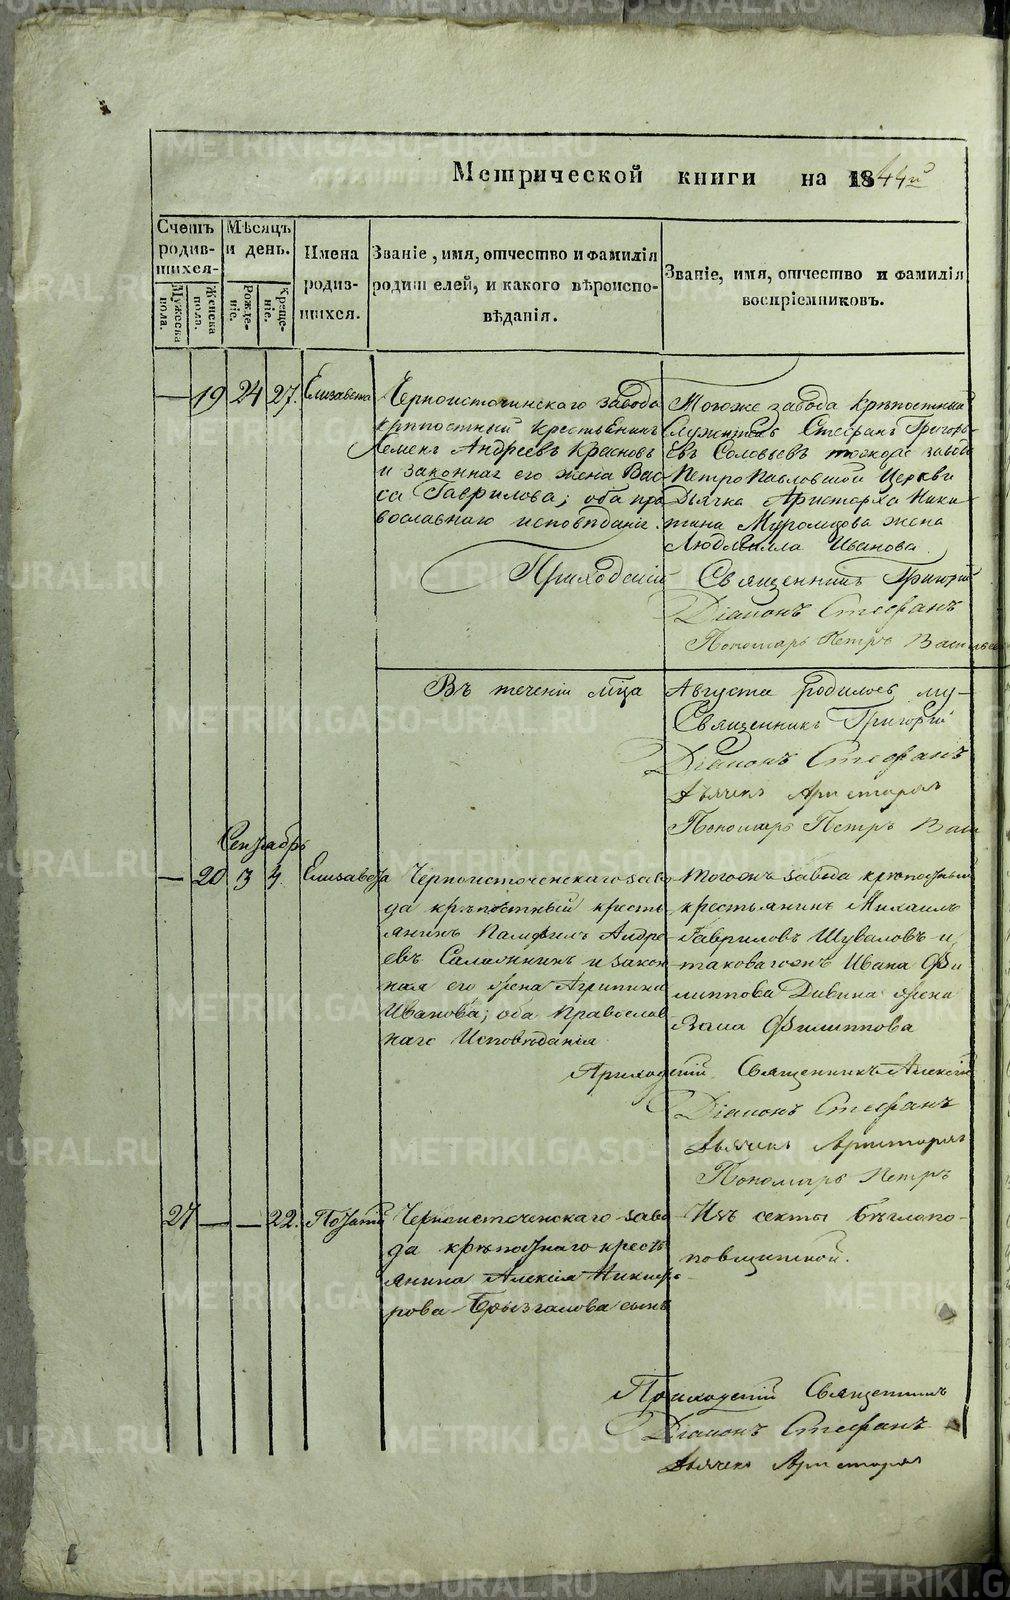 Метрической книги на 1844й
Счетъ родив-шихся.
Мужеска пола.
Женска пола.
Мѣсяцъ и день.
Рожде-ніе.
Креще-ніе.
Имена родив-шихся.
Званіе, имя, отчество и фамилія
родителей, и какого вѣроиспо-
вѣданія.
Званіе, имя, отчество и фамилія
воспріемниковъ.
— 19 24 27. Елизавета
Черноисточинскаго завода
крѣпостный крестьянинъ
Семенъ Андреевъ Красновъ
и законная его жена Вас-
са Гаврилова; оба пра
вославнаго исповѣданія.
Тогоже завода крѣпостный
Служитель Стефанъ Григорь-
евъ Соловьевъ тогоже завода
Петропавловской Церкви
Дьячка Аристарха Ники-
тина Муромцова жена
Людмилла Иванова
Приходскій Священникъ Григорій
Діаконъ Стефанъ
Пономарь Петръ Васильевъ
Въ теченіи мца Августа родилось му-
Священникъ Григорій
Діаконъ Стефанъ
Дьячекъ Аристархъ
Пономарь Петръ Васи
Сентябрь
— 20 3 4. Елизавета
Черноисточенскаго заво
да крѣпостный кресть
янинъ Памфилъ Андре
евъ и закон
ная его жена Агрипина
Иванова; оба Православ
наго Исповѣданія
Тогожъ завода крѣпостный
крестьянинъ Михаилъ
Гавриловъ Шуваловъ и
таковагожъ Ивана Фи
липпова Дивина жена
Филиппова
Приходскій Священникъ Алексій
Діаконъ Стефанъ
Дьячекъ Аристархъ
Пономарь Петръ
27 — — 22.
Черноисточенскаго заво
да крѣпостнаго кресть
янина Алексія Никифо-
рова Брызгалова сынъ
Изъ секты бѣглопо-
повщинской.
Приходскій Священникъ
Діаконъ Стефанъ
Дьячекъ Аристархъ
METRIKI.GASO-URAL.RU